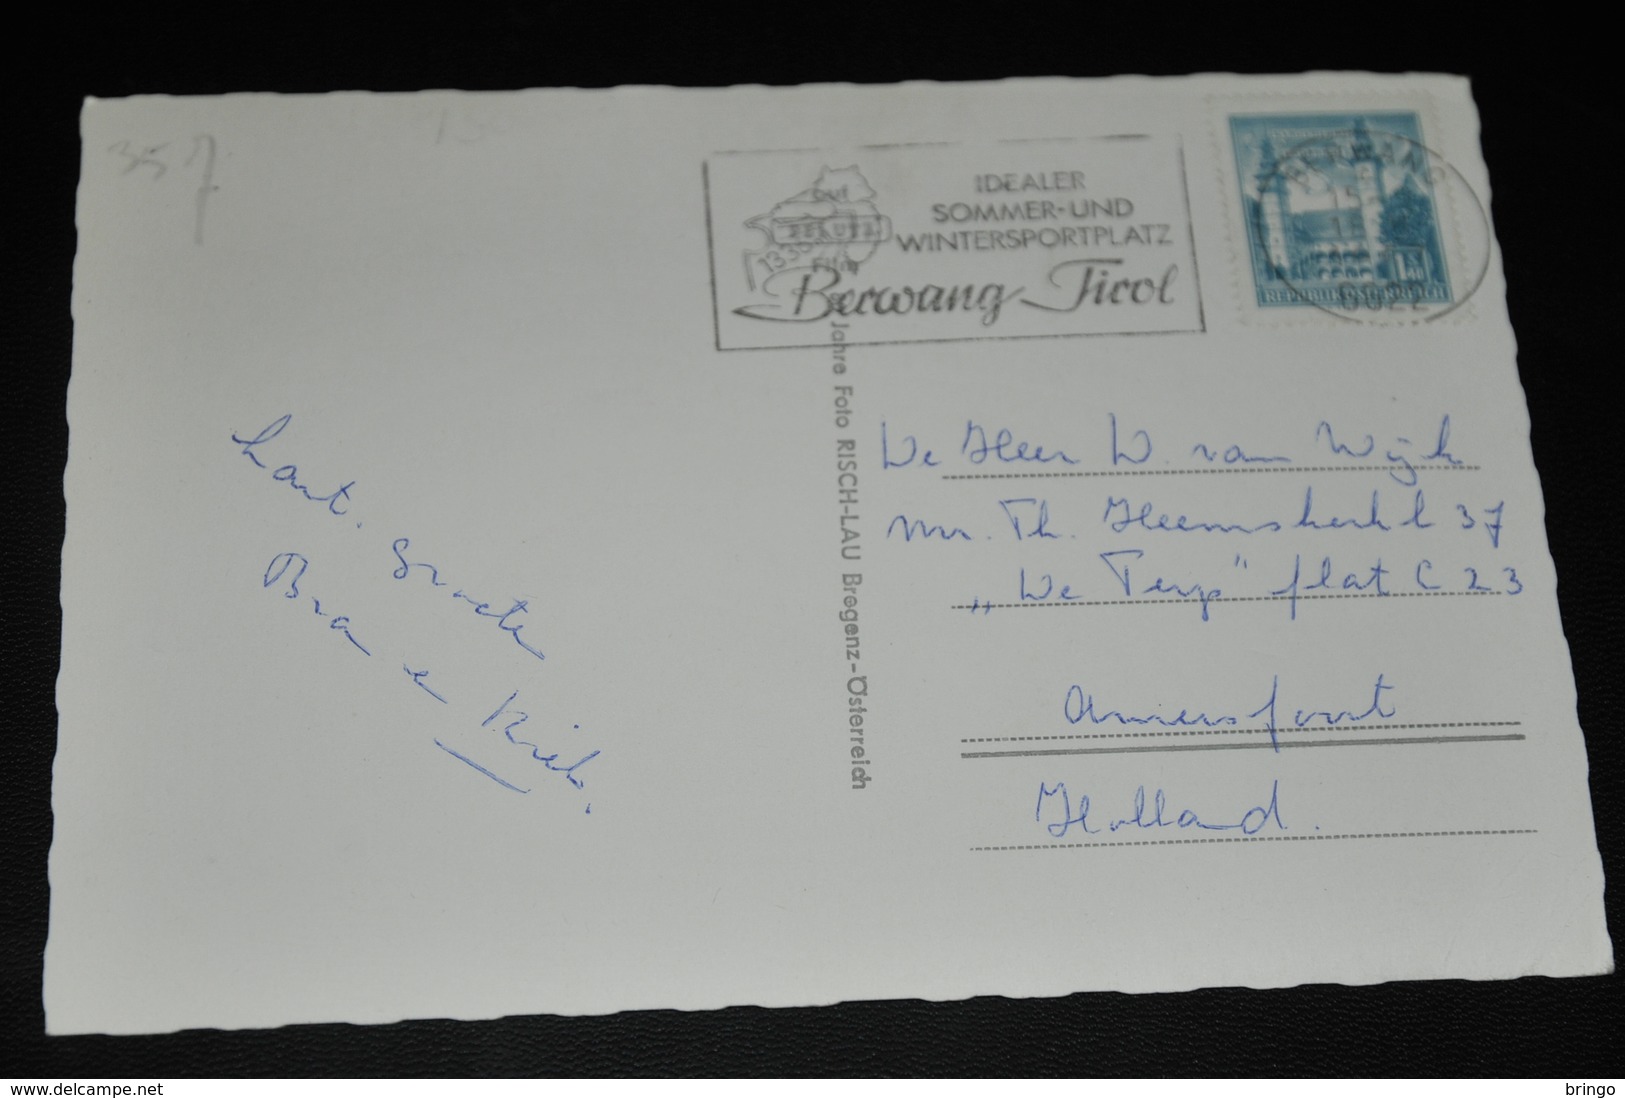 357
auf
1336
IDEALER
SOMMER-UND
WINTERSPORTPLATZ
Berwang Tirol
BERWANG
15
6622
1.40
REPUBLIK ÖSTERREICH
Jahre Foto RISCH-LAU Bregenz-Österreich
Hart. Groeten
Bra e Riek.
De Heer W. van Wijk
Mr. Th. Heemskerkl 37
„De Terp" flat C 23
Amersfoort
Holland.
delcampe.net
bringo